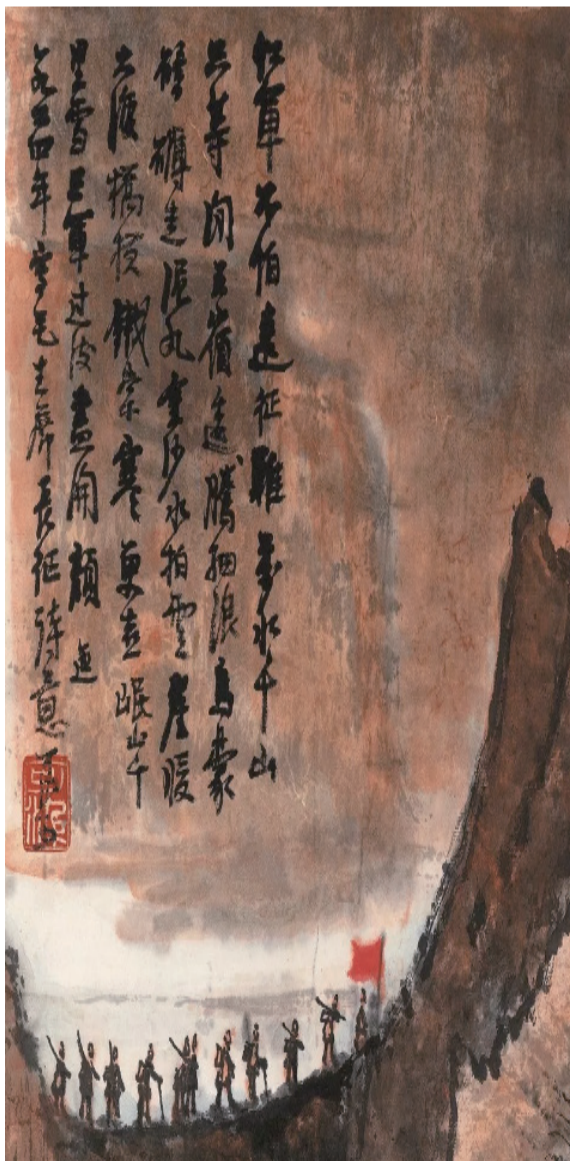 红軍不怕遠征難萬水千山
只等闲五嶺逶騰細浪烏蒙
磅礴走泥丸金沙水拍雲崖暖
大渡橋横鐵索寒更喜岷山千
里雪三軍过後盡開顏迤
四年寫毛主席長征詩意